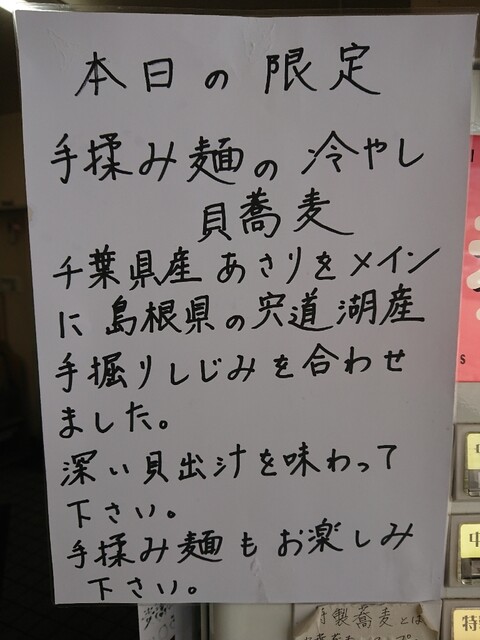 本日の限定
手揉み麺の冷やし
貝蕎麦
千葉県産あさりをメイン
に島根県の宍道湖産
手掘りしじみを合わせ
ました。
深い貝出汁を味わって
下さい。
手揉み麺もお楽しみ
下さい。
特製蕎麦とは